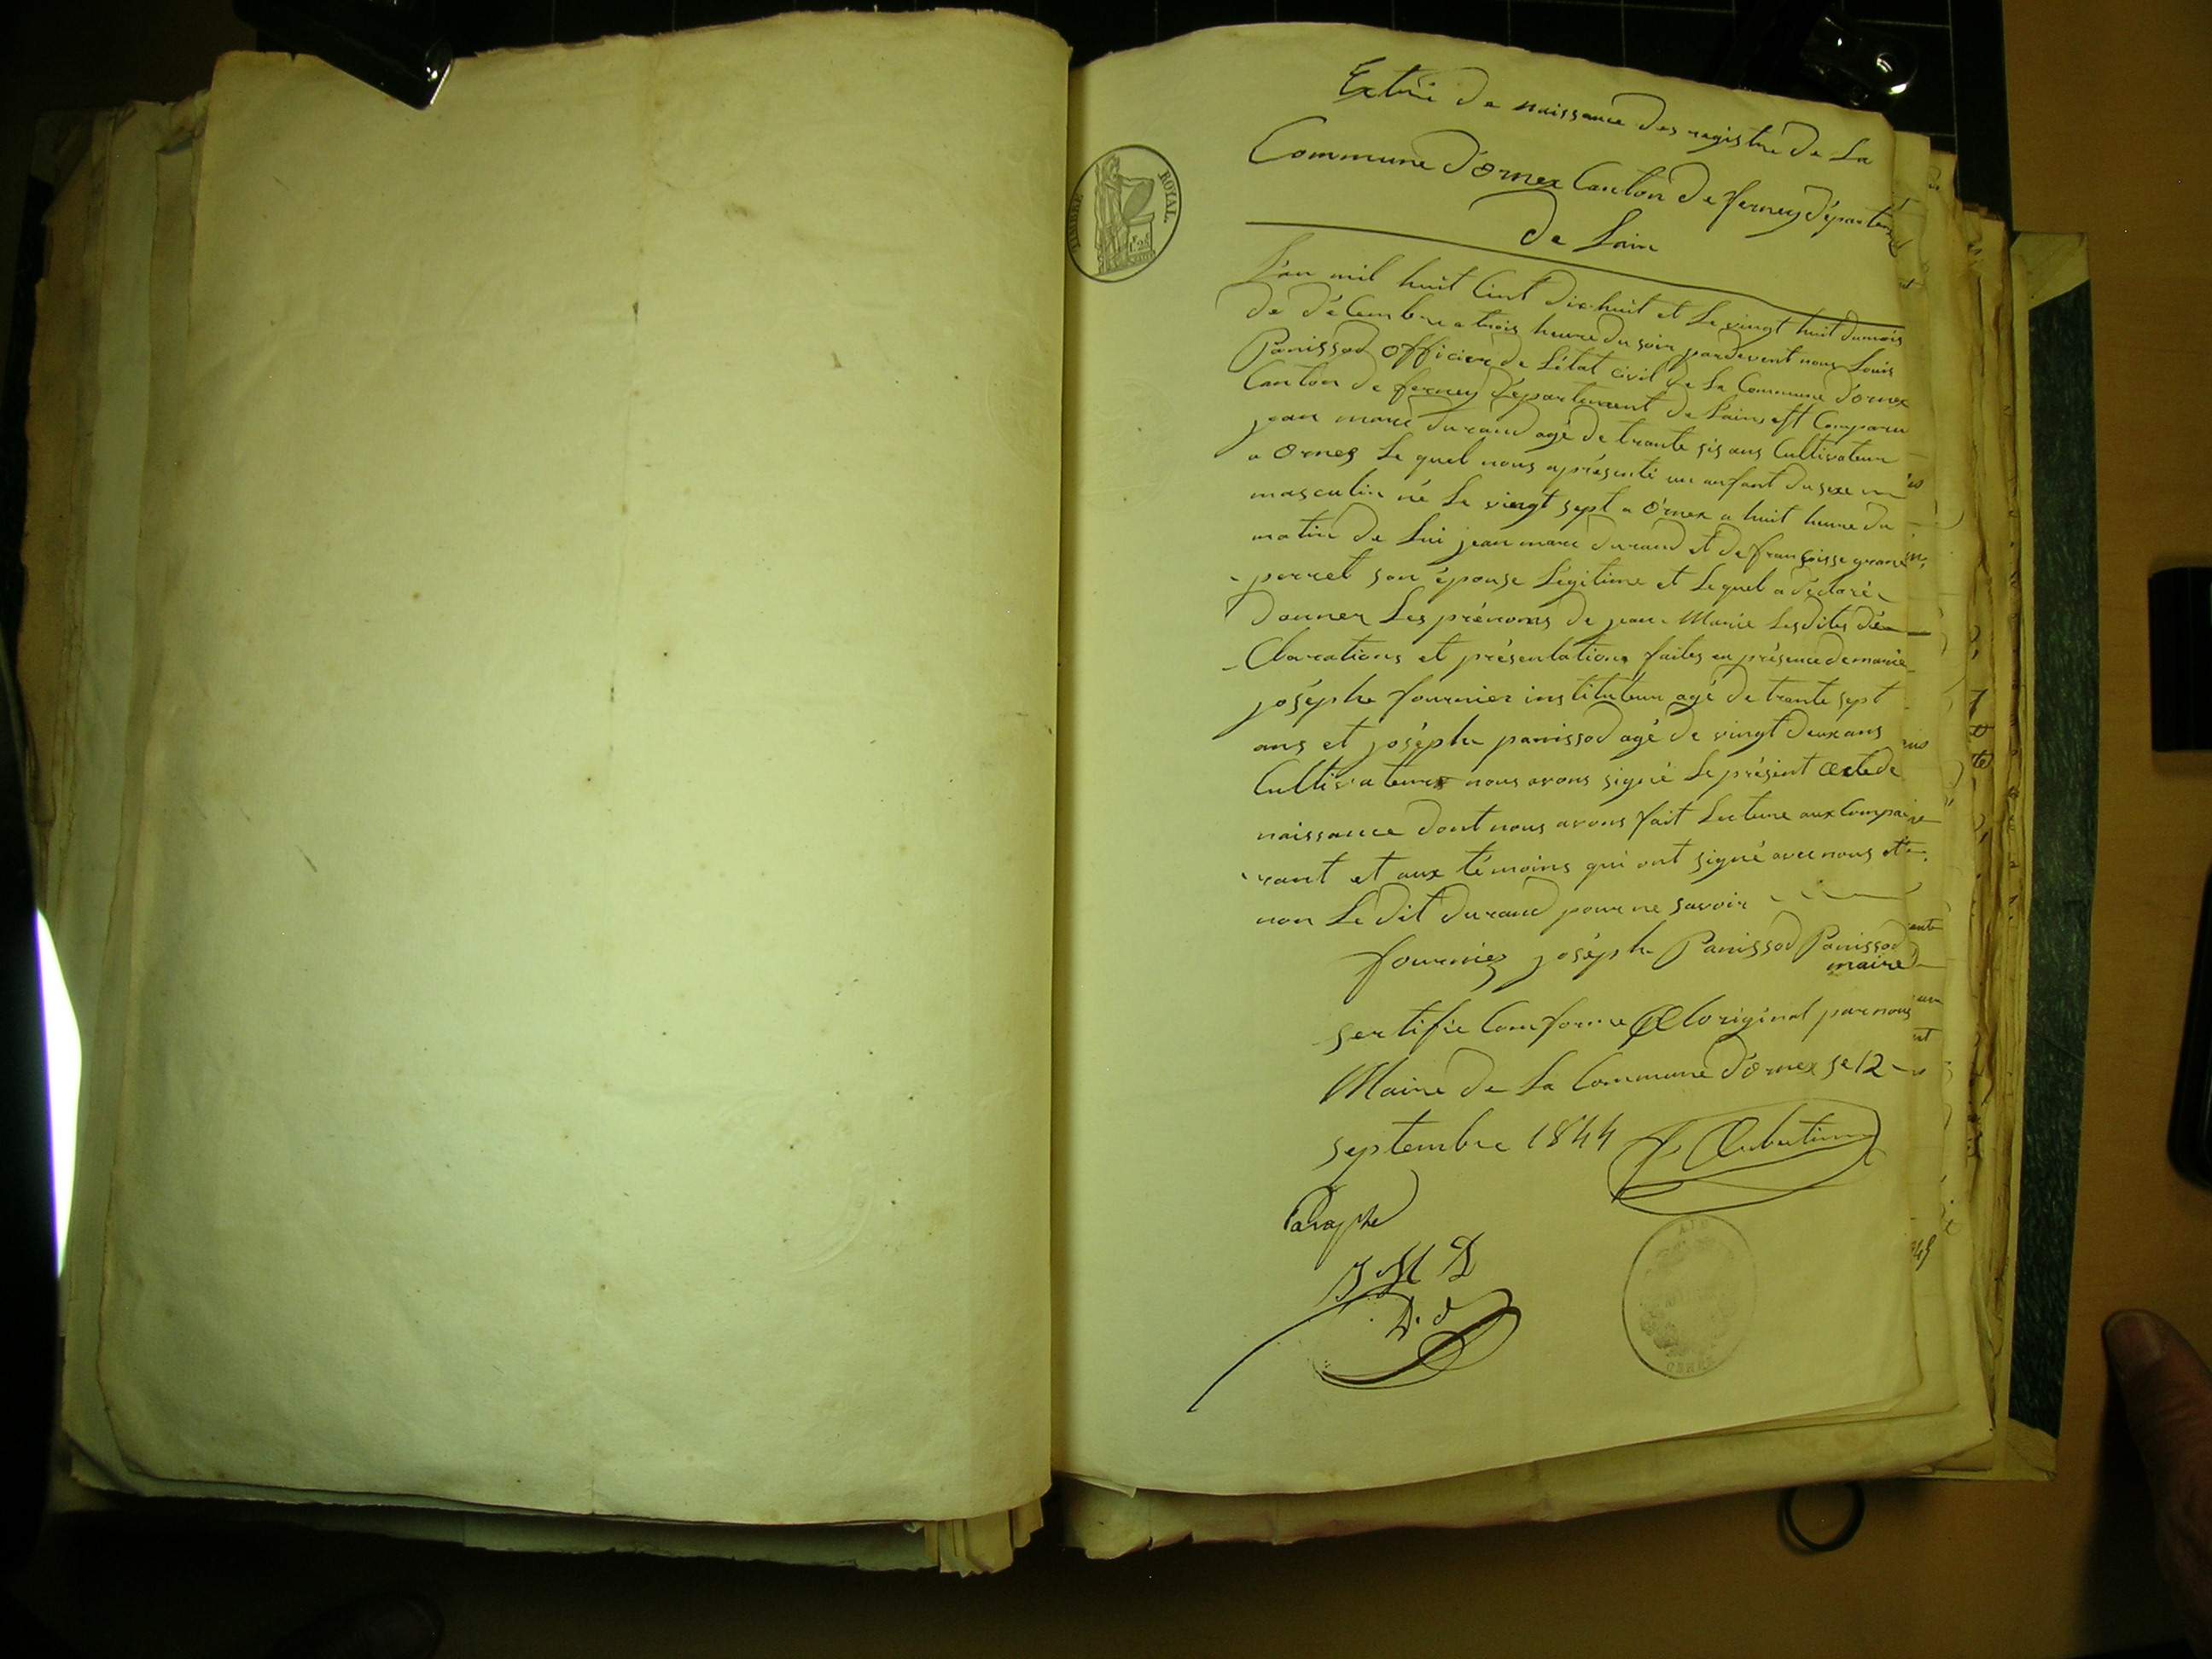 TIMBRE ROYAL
Extrai de naissance des registre de La
Commune d'ornex Canton de ferney département
de Lain
L'an mil huit Cent dix huit et Le vingt huit du mois
de décembre a trois heure du soir pardevent nous Louis
Panissod officier de L'état civil de La Commune d'ornex
Canton de ferney département de Lain, est Comparu
jean marie durand agé de trante sis ans Cultivateur
a Ornex Le quel nous a présenté un anfant du sexe
masculin né Le vingt sept a Ornex a huit heure du
matin de Lui jean marie durand et de françoisse grand
perret son épouse Légitime et Lequel a déclaré
Donner Les prénoms de jean-Marie Les dites dé
Clarations et présentations faites en présence de marie
joséphe fournier instituteur agé de trante sept
ans et joséphe panissod agé de vingt deux ans
Cultivateur nous avons signé Le présent acte de
naissance dont nous avons fait Lecture aux Compa
rant et aux témoins qui ont signé avec nous et
non Le dit durand pour ne savoir
fournier joséph Panissod Panissod
maire
sertifie Comforme a Loriginal par nous
Maire de La Commune d'ornex se 12
septembre 1844
Paraphe
J M D
D. d